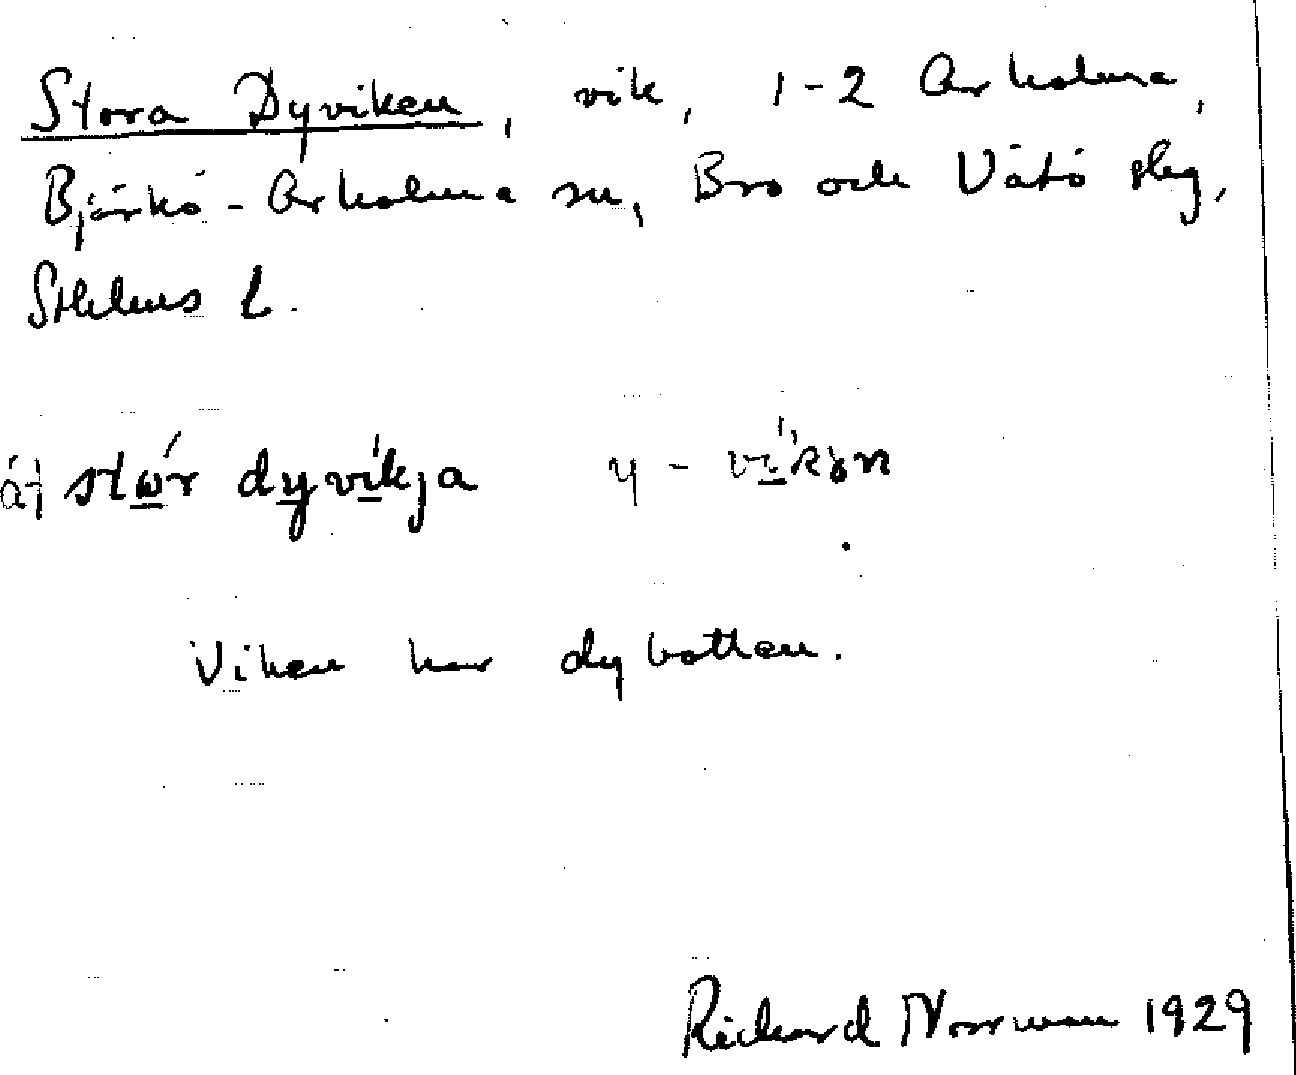 Stora Dyviken, vik, 1-2 Arholma,
Björkö-Arholma sn, Bro och Vätö slg,
Sthlms l.
stώ̲r dy̲ví̲kja y - ví̲kən
Viken har dybotten.
Rickard Norrman 1929